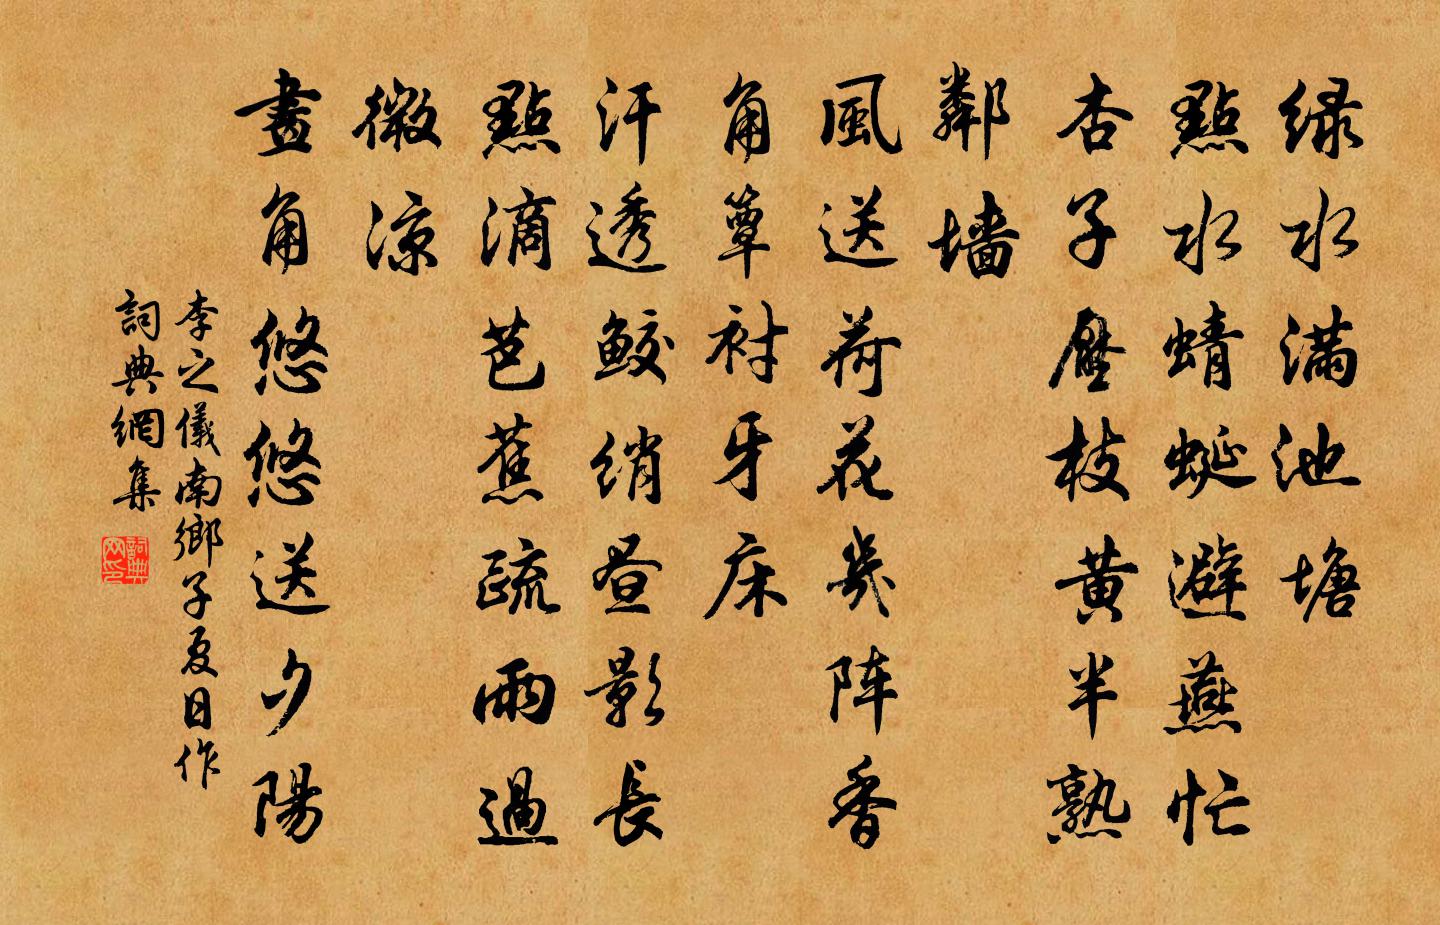 绿水滿池塘
點水蜻蜓避燕忙
杏子壓枝黄半熟
鄰墙
風送荷花幾阵香
角簟衬牙床
汗透鲛綃昼影長
點滴芭蕉疏雨過
微涼
畫角悠悠送夕陽
李之儀南鄉子夏日作
詞典網集
詞典网印